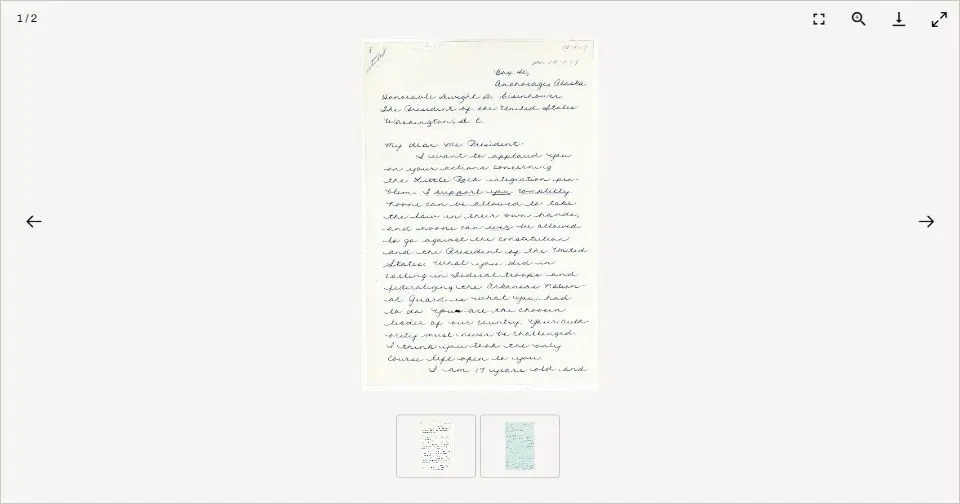 1 / 2
Box 40,
Anchorage, Alaska
Honorable Dwight D. Eisenhower
The President of the United States
Washington, D. C.
My dear Mr. President:
I want to applaud you
on your actions concerning
the Little Rock integration pro-
blem. I support you completly.
Noone can be allowed to take
the law in their own hands,
and noone can ever be allowed
to go against the constitution
and the President of the United
States. What you did in
calling in Federal troops and
federalizing the Arkansas Nation-
al Guard is what you had
to do. You are the chosen
leader of our country. Your auth-
ority must never be challenged.
I think you took the only
course left open to you.
I am 17 years old and